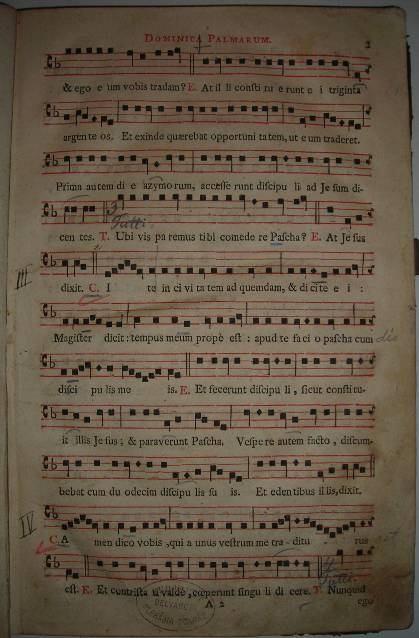 DOMINICA PALMARUM. 2
& ego eum vobis tradam? E. At illi constituerunt ei triginta
argenteos. Et exinde quærebat opportunitatem, ut eum traderet.
Prima autem die azymorum, accesserunt discipuli ad Jesum di-
Tutti.
centes. T. Ubi vis paremus tibi comedere Pascha? E. At Jesus
III
dixit. C. Ite in civitatem ad quemdam, & dicite ei:
Magister dicit: tempus meum prope est: apud te facio pascha cum
discipulis meis. E. Et fecerunt discipuli, sicut constitu-
it illis Jesus; & paraverunt Pascha. Vespere autem facto, discum-
bebat cum duodecim discipulis suis. Et edentibus illis, dixit.
IV
C. Amen dico vobis, quia unus vestrum me traditurus
Tutti.
est. E. Et contristati valde, cœperunt singuli dicere. T. Nunquid
A 2 ego